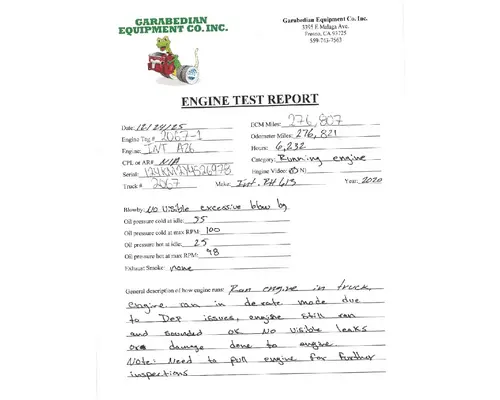 GARABEDIAN
EQUIPMENT CO. INC.
Garabedian Equipment Co. Inc.
Malaga Ave.
Fresno, CA 93725
ENGINE TEST REPORT
Date: 12/24/25
ECM Miles: 276,807
Engine Tag # 2067-1
Odometer Miles: 276,821
Engine: INT A26
Hours: 6,232
CPL or AR# N/A
Category: Running engine
Serial:
Engine Video: (Y) N)
Truck # 2067
Make: Int. RH 613
Year: 2020
Blowby: No Visible excessive blow by
Oil pressure cold at idle: 35
Oil pressure cold at max RPM: 100
Oil pressure hot at idle: 25
Oil pressure hot at max RPM: 98
Exhaust Smoke: none
General description of how engine runs: Ran engine in truck,
Engine ran in derate mode due
to Def issues, engine still ran
and sounded OK No Visible leaks
or damage done to engine.
Note: Need to pull engine for further
inspections